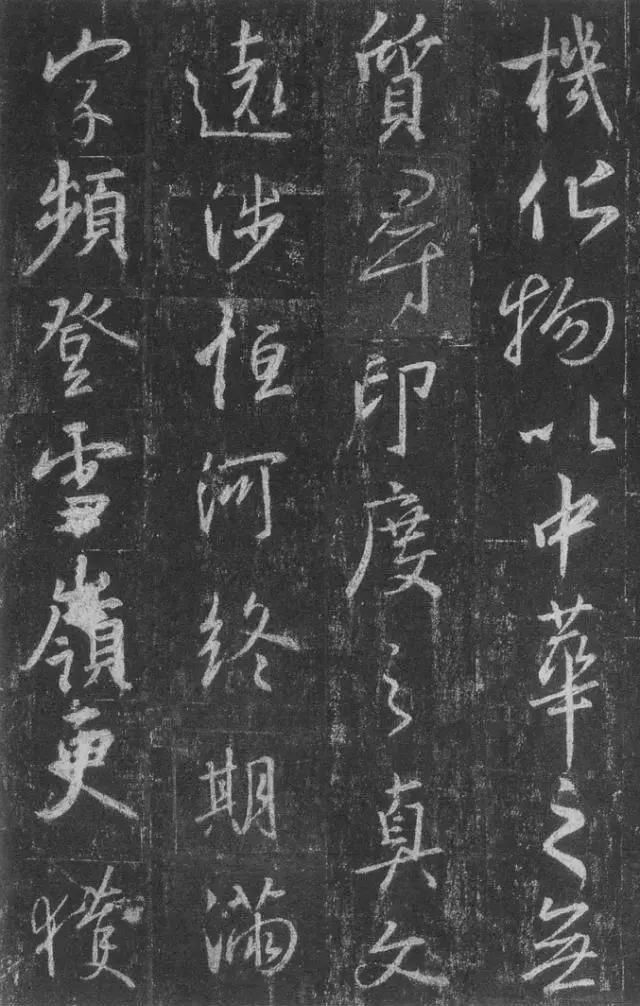 機化物以中華之無
質尋印度之真文
遠涉恒河終期滿
字頻登雪嶺更獲